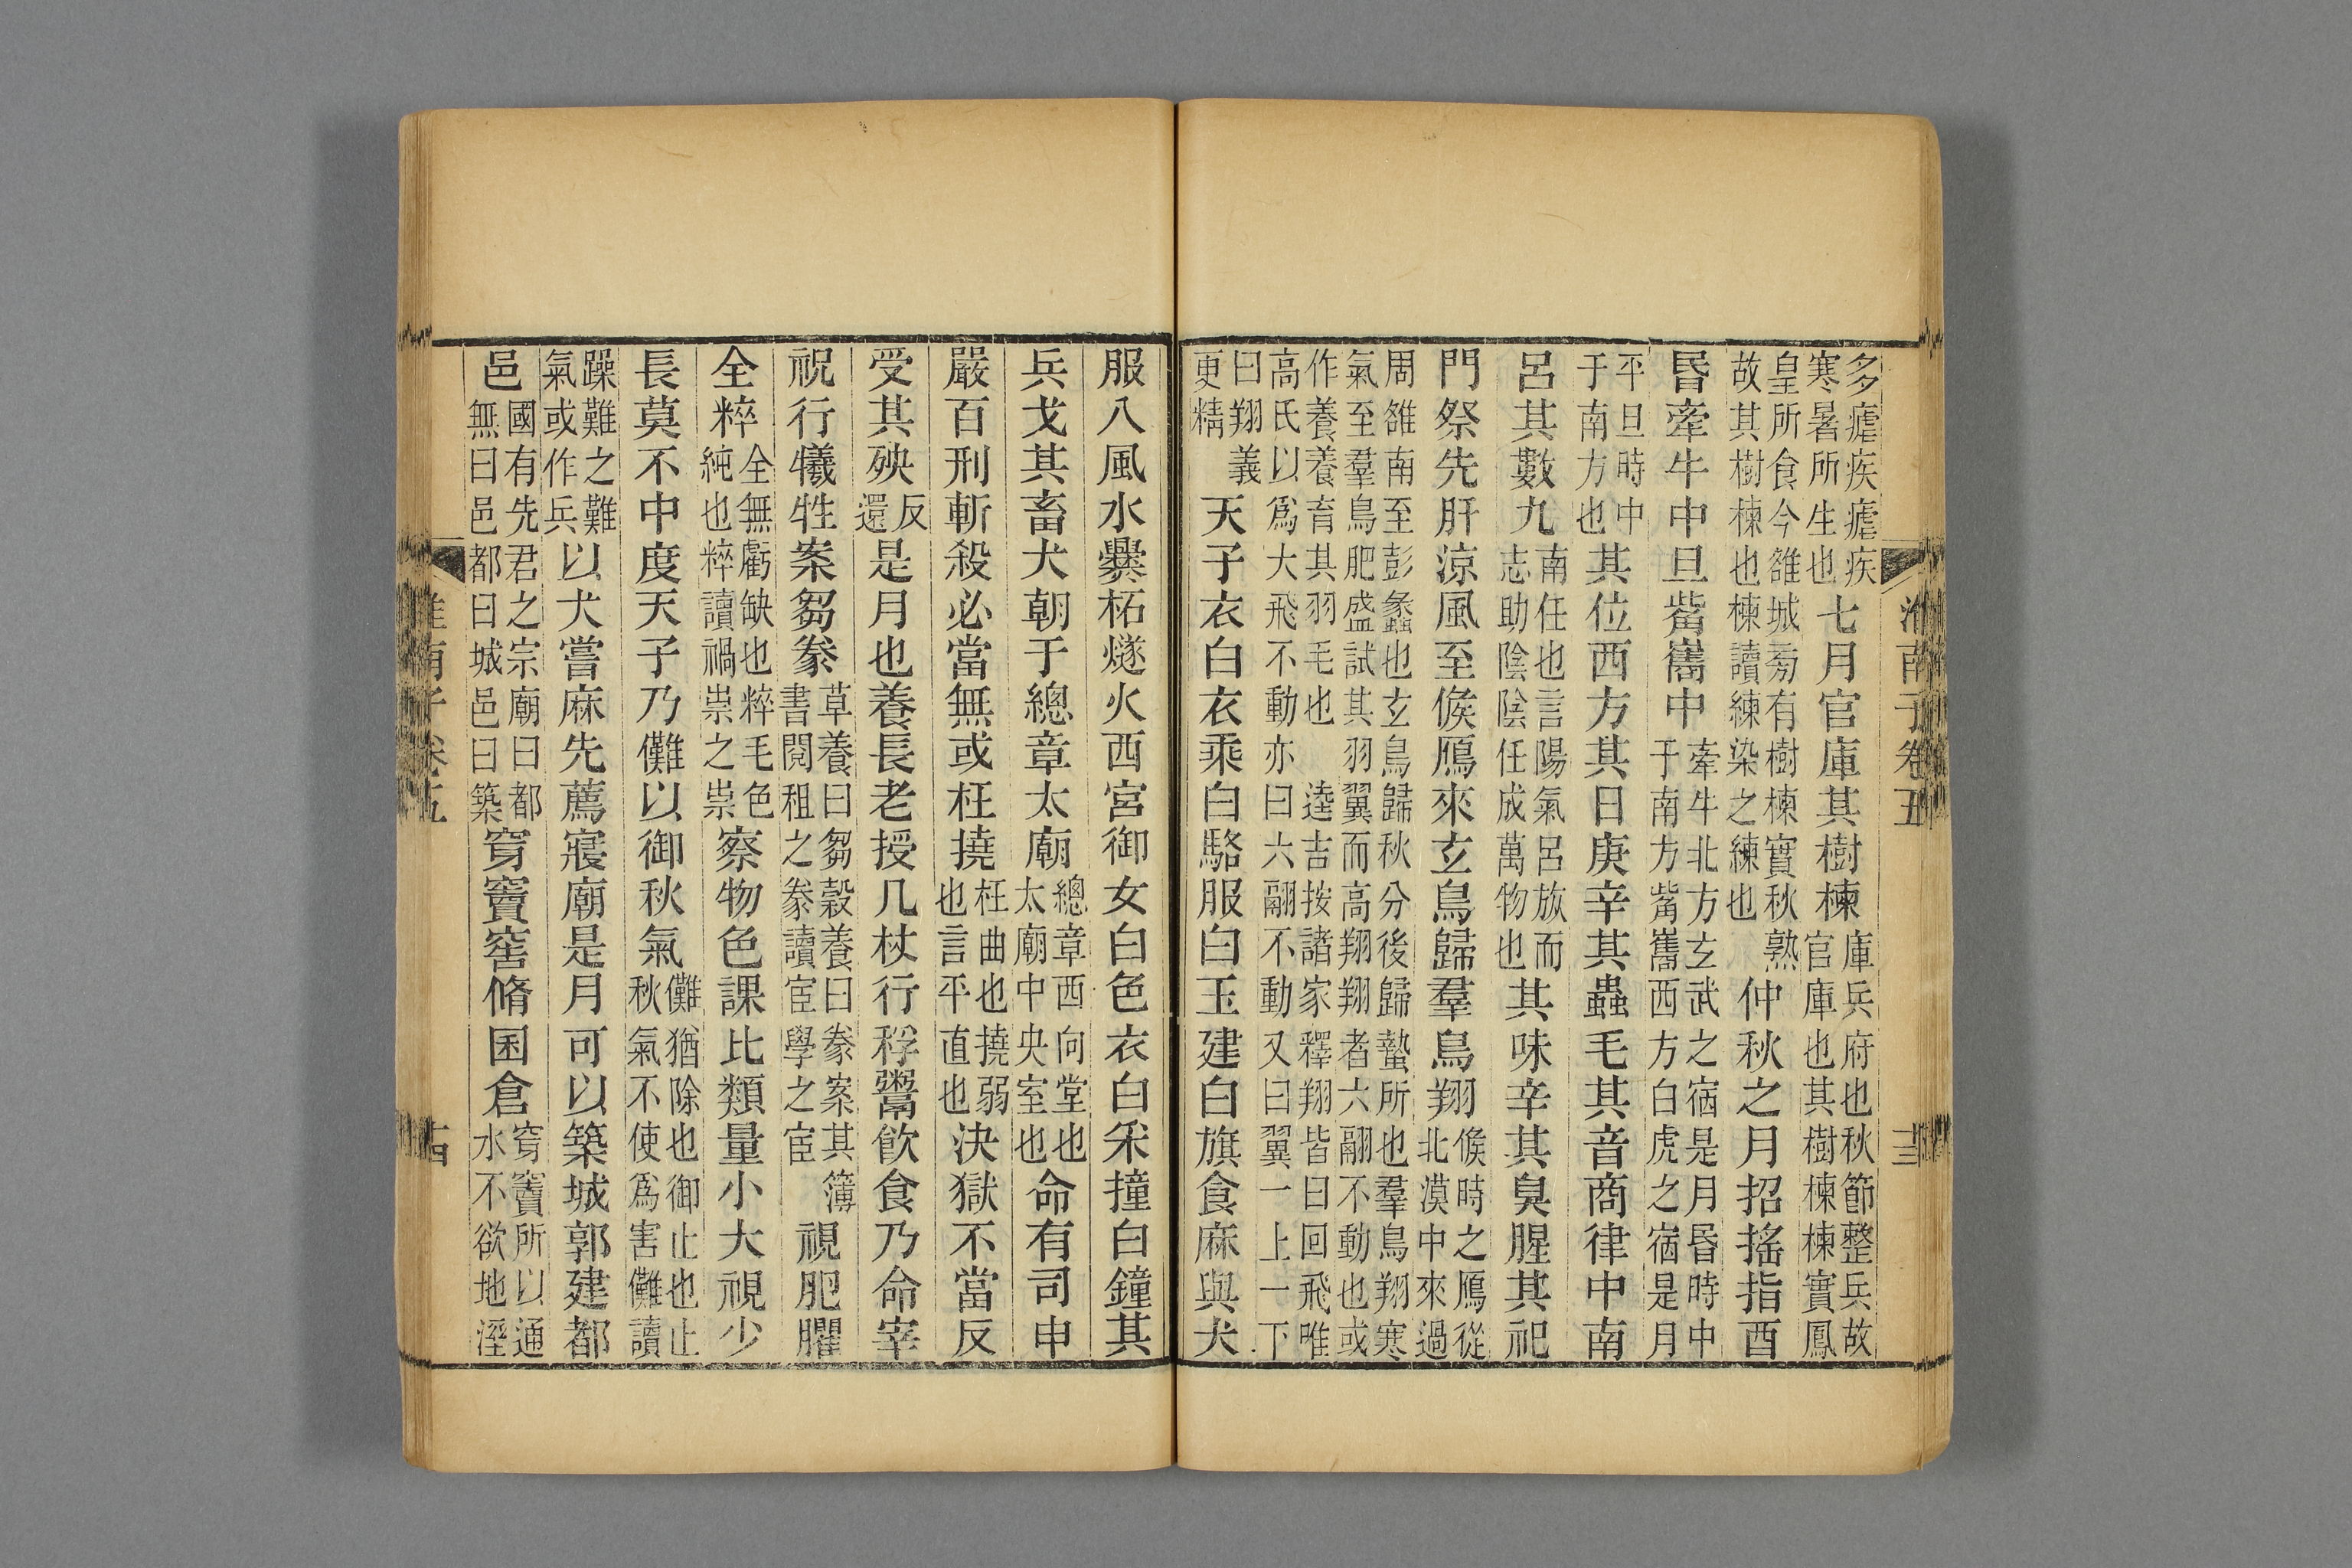 多瘧疾瘧疾寒暑所生也七月官庫其樹楝庫兵府也秋節整兵故官庫也其樹楝楝實鳳
皇所食今雒城旁有樹楝實秋熟故其樹楝也楝讀練染之練也仲秋之月招搖指酉
昬牽牛中旦觜巂中牽牛北方玄武之宿是月昬時中于南方觜巂西方白虎之宿是月
平旦時中于南方也其位西方其日庚辛其蟲毛其音商律中南
呂其數九南任也言陽氣呂放而志助陰陰任成萬物也其味辛其臭腥其祀
門祭先肝涼風至候鴈來玄鳥歸羣鳥翔候時之鴈從北漠中來過
周雒南至彭蠡也玄鳥歸秋分後歸蟄所也羣鳥翔寒氣至羣鳥肥盛試其羽翼而高翔翔者六翮不動也或
作養養育其羽毛也逵吉按諸家釋翔皆曰回飛唯高氏以爲大飛不動亦曰六翮不動又曰翼一上一下
曰翔義更精天子衣白衣乘白駱服白玉建白旗食麻與犬
淮南子卷五
十三
服八風水爨柘燧火西宮御女白色衣白采撞白鐘其
兵戈其畜犬朝于總章太廟總章西向堂也太廟中央室也命有司申
嚴百刑斬殺必當無或枉撓枉曲也撓弱也言平直也決獄不當反
受其殃反還是月也養長老授几杖行稃鬻飲食乃命宰
祝行犧牲案芻豢草養曰芻穀養曰豢案其簿書閱租之豢讀宦學之宦視肥臞
全粹全無虧缺也粹毛色純也粹讀禍祟之祟察物色課比類量小大視少
長莫不中度天子乃儺以御秋氣儺猶除也御止也止秋氣不使爲害儺讀
躁難之難氣或作兵以犬嘗麻先薦寢廟是月可以築城郭建都
邑國有先君之宗廟曰都無曰邑都曰城邑曰築穿竇窖脩囷倉穿竇所以通水不欲地溼
淮南子卷五
十四